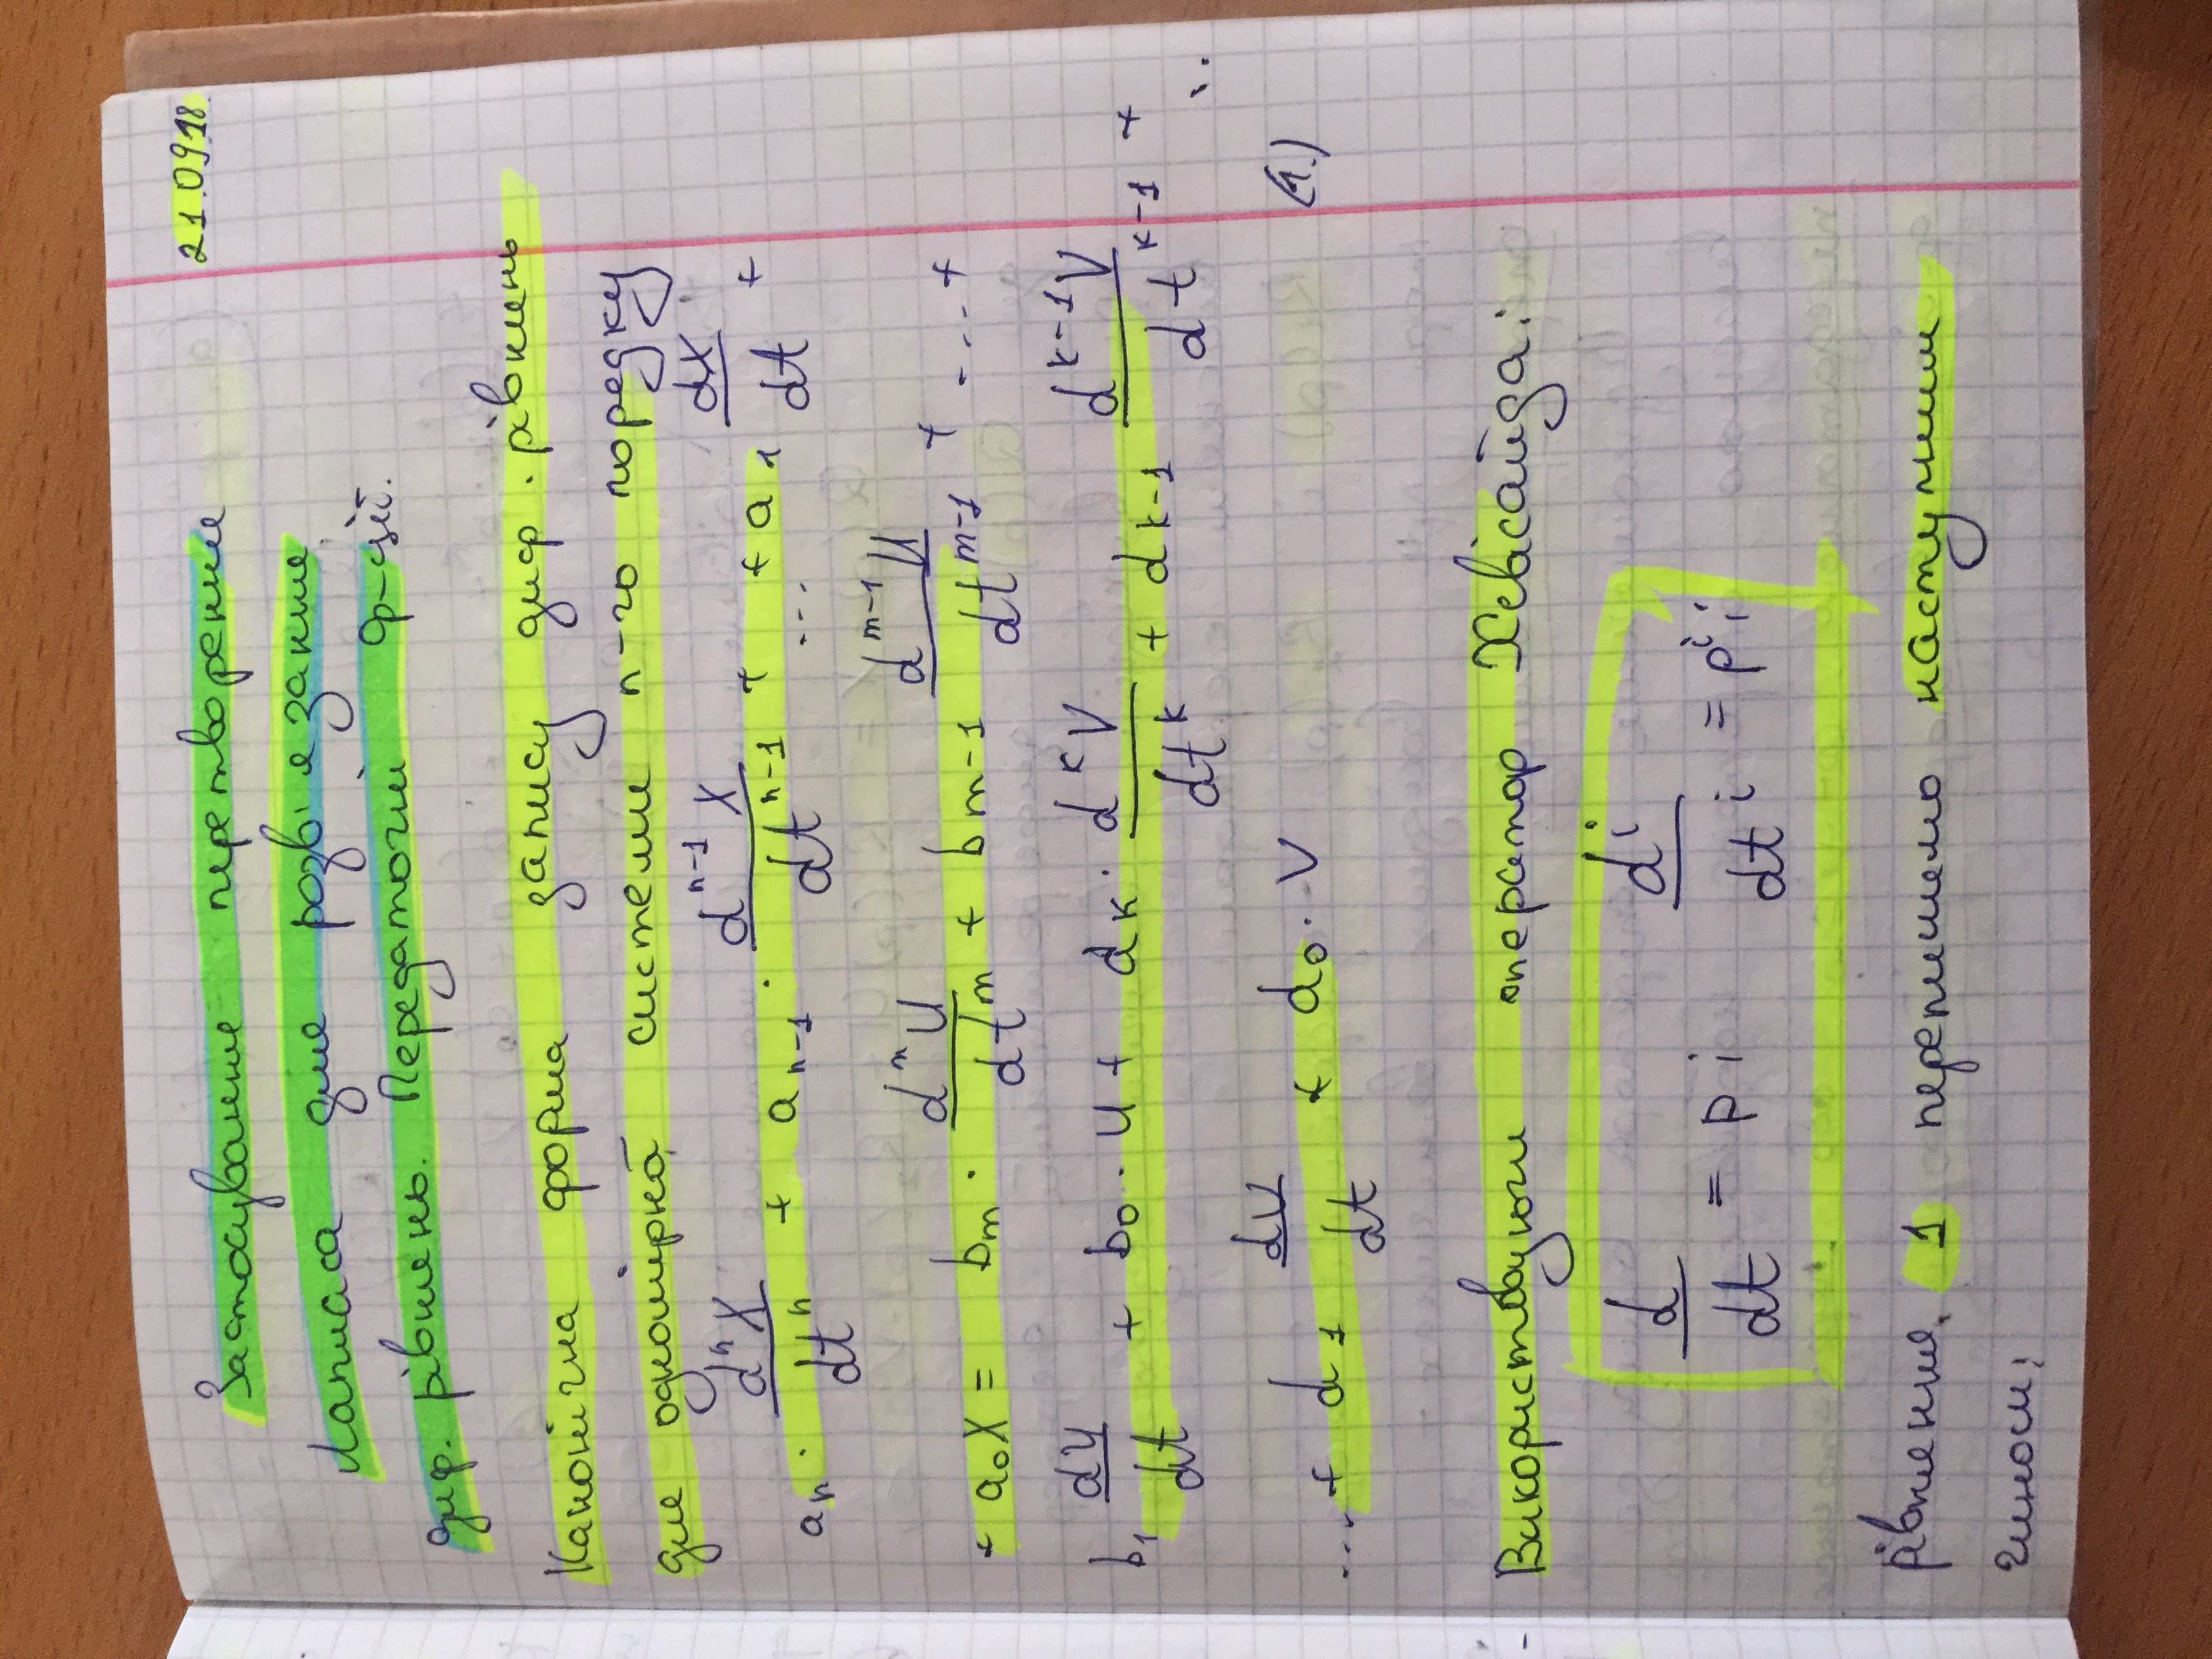 21.09.18.
Застосування перетворення
Лапласа для розв'язання
диф. рівнянь. Передаточні ф-ції.
Канонічна форма запису диф. рівнянь
для одномірної системи n-го порядку
aₙ · dⁿX/dtⁿ + aₙ₋₁ · dⁿ⁻¹X/dtⁿ⁻¹ + ... + a₁ dX/dt +
+ a₀X = bₘ · dⁿU/dtᵐ + bₘ₋₁ dᵐ⁻¹U/dtᵐ⁻¹ + ... +
b₁ dU/dt + b₀ · U + dₖ · dᵏV/dtᵏ + dₖ₋₁ dᵏ⁻¹V/dtᵏ⁻¹ + ..
... + d₁ dV/dt + d₀ · V (1.)
Використовуючи оператор Хевісайда:
d/dt = p ; dⁱ/dtⁱ = pⁱ ;
рівняння. 1 перепишемо наступним
чином: